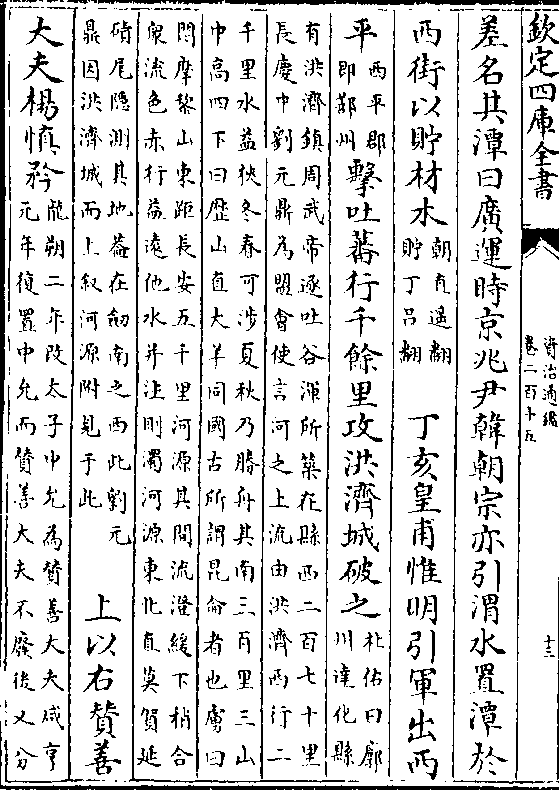 欽定四庫全書
資治通鑑
卷二百十五
十三
差名其潭曰廣運時京兆尹韓朝宗亦引渭水置潭於
西街以貯材木朝直遥翻貯丁吕翻丁亥皇甫惟明引軍出西
平西平郡即鄯州擊吐蕃行千餘里攻洪濟城破之杜佑曰廓州達化縣
有洪濟鎮周武帝逐吐谷渾所築在縣西二百七十里
長慶中劉元鼎為盟會使言河之上流由洪濟西行二
千里水益狹冬春可涉夏秋乃勝舟其南三百里三山
中高四下曰歴山直大羊同國古所謂昆侖者也虜曰
悶摩黎山東距長安五千里河源其間流澄緩下稍合
衆流色赤行益遠他水并注則濁河源東北直莫賀延
磧尾隱測其地蓋在劒南之西此劉元
鼎因洪濟城而上叙河源附見于此上以右贊善
大夫楊慎矜龍朔二年改太子中允為贊善大夫咸亨
元年復置中允而贊善大夫不廢後又分